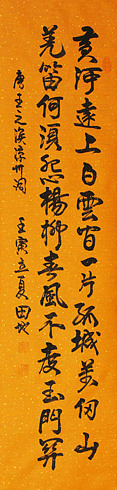 黄河遠上白雲间一片孤城萬仞山
羌笛何須怨楊柳春風不度玉門関
唐王之渙凉州詞 壬寅立夏 田地